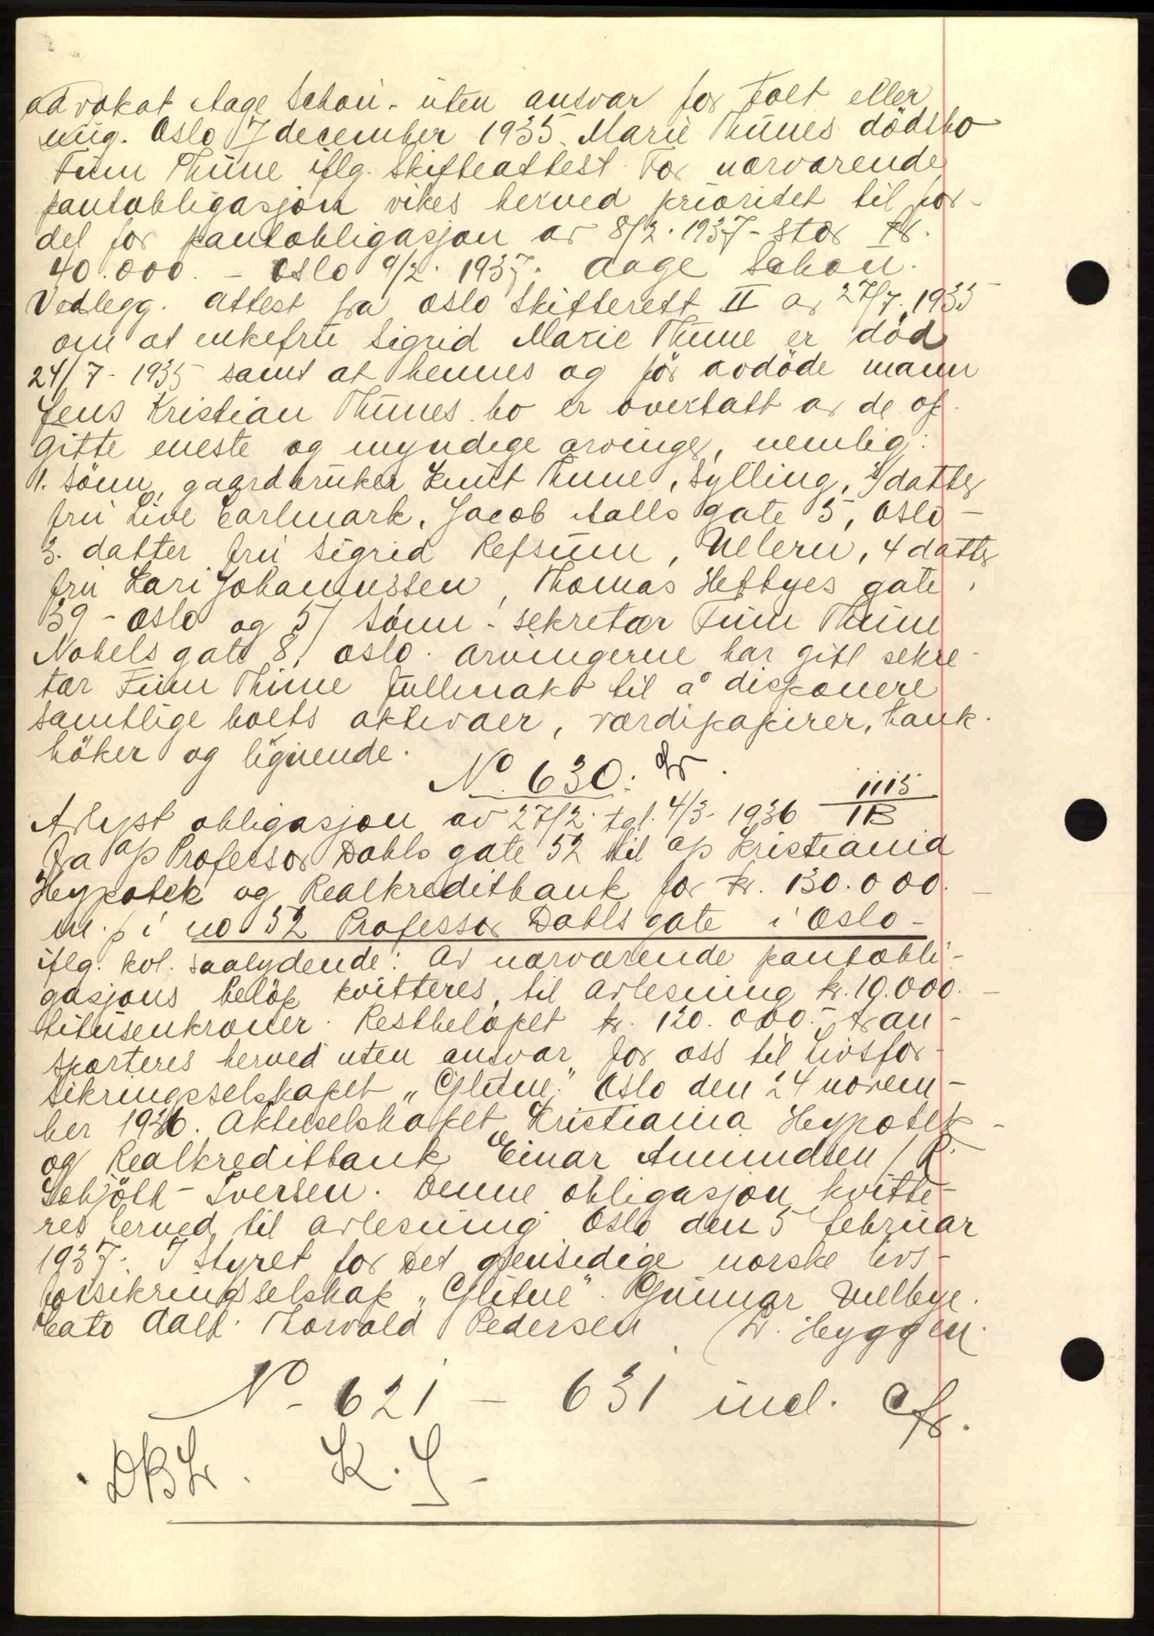 advokat Aage Schou - uten ansvar for boet eller
mig. Oslo 7 december 1935. Marie Thunes dödsbo
Finn Thune iflg. skifteattest. For nærværende
pantobligasjon vikes herved prioritet til for-
del for pantobligasjon av 8/2. 1937 - stor kr.
40.000. - Oslo 9/2. 1937. Aage Schou.
Vedlegg. Attest fra Oslo Skifterett II av 27/7. 1935
om at enkefru Sigrid Marie Thune er död
24/7 - 1935 samt at hennes og för avdöde mann
Jens Kristian Thunes bo er overtatt av de op-
gitte eneste og myndige arvinger, nemlig:
1. Sönn, gaardbruker Knut Thune, Sylling, 2/ datter
fru Live Carlmark, Jacob Aalls gate 5, Oslo -
3. datter fru Sigrid Refsum, Ullern, 4 datter
fru Kari Johannessen, Thomas Heftyes gate
39 - Oslo og 5/ Sönn - sekretær Finn Thune
Nobels gate 8, Oslo. Arvingerne har gitt sekre-
tær Finn Thune fullmakt til å disponere
samtlige boets aktivaer, værdipapirer, bank-
böker og lignende.
No 630:
Avlyst obligasjon av 27/2. tgl. 4/3 - 1936 1115/IB
Fra A/S Professor Dahls gate 52 til A/S Kristiania
Hypotek og Realkreditbank for kr. 130.000. -
m. p i no 52 Professor Dahls gate i Oslo -
iflg. kvl. saalydende: Av nærværende pantobli-
gasjons belöp kvitteres til avlesning kr. 10.000. -
titusenkroner. Restbelöpet kr. 120.000. - tran-
sporteres herved uten ansvar for oss til Livsfor-
sikringsselskapet "Glitne". Oslo den 24 novem-
ber 1936. Aktieselskapet Kristiania Hypotek -
og Realkreditbank Einar Amundsen / R.
Schjölt - Iversen. Denne obligasjon kvitte-
res herved til avlesning Oslo den 5 februar
1937. I Styret for Det gjensidige norske livs-
forsikringsselskap "Glitne". Gunnar Mellbye.
Cato Aall. Thorvald Pedersen / W. Heyggen.
No - 621 - 631 incl. Cfr.
DBL. K. S -